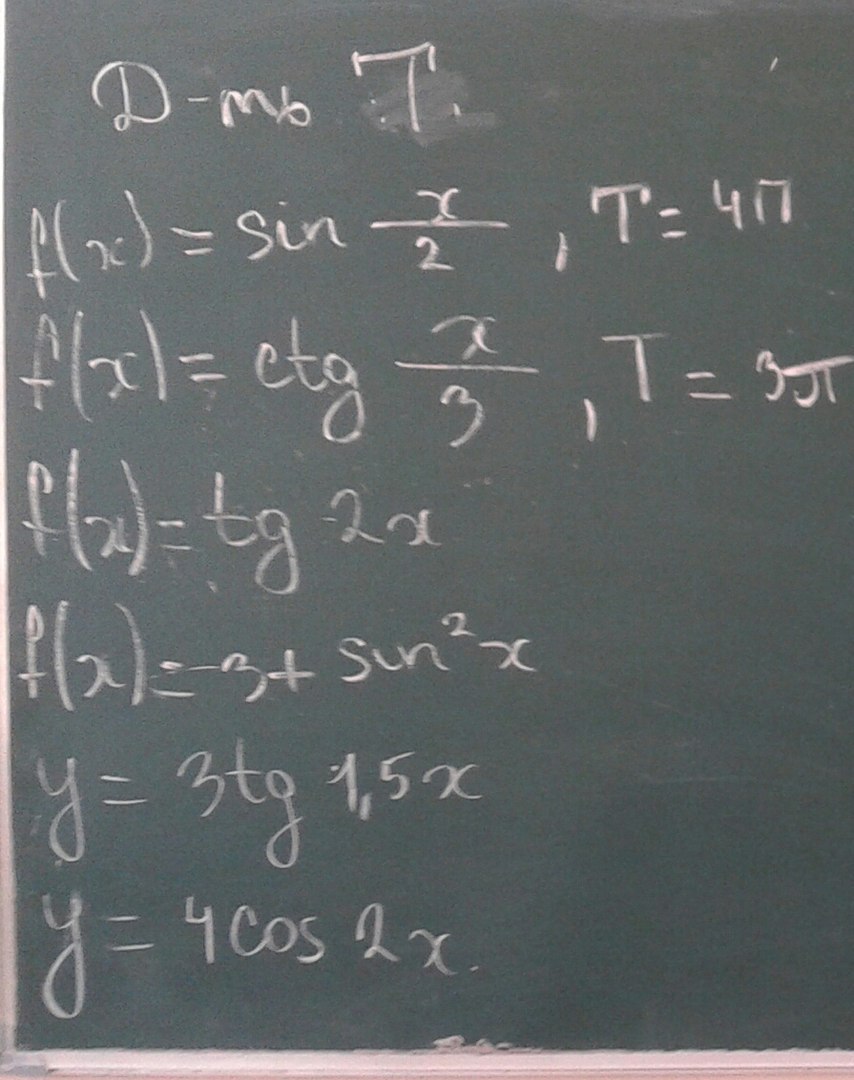 D-ть T.
f(x) = sin x/2, T = 4П
f(x) = ctg x/3, T = 3π
f(x) = tg 2x
f(x) = -3 + sin²x
y = 3tg 1,5x
y = 4cos 2x.